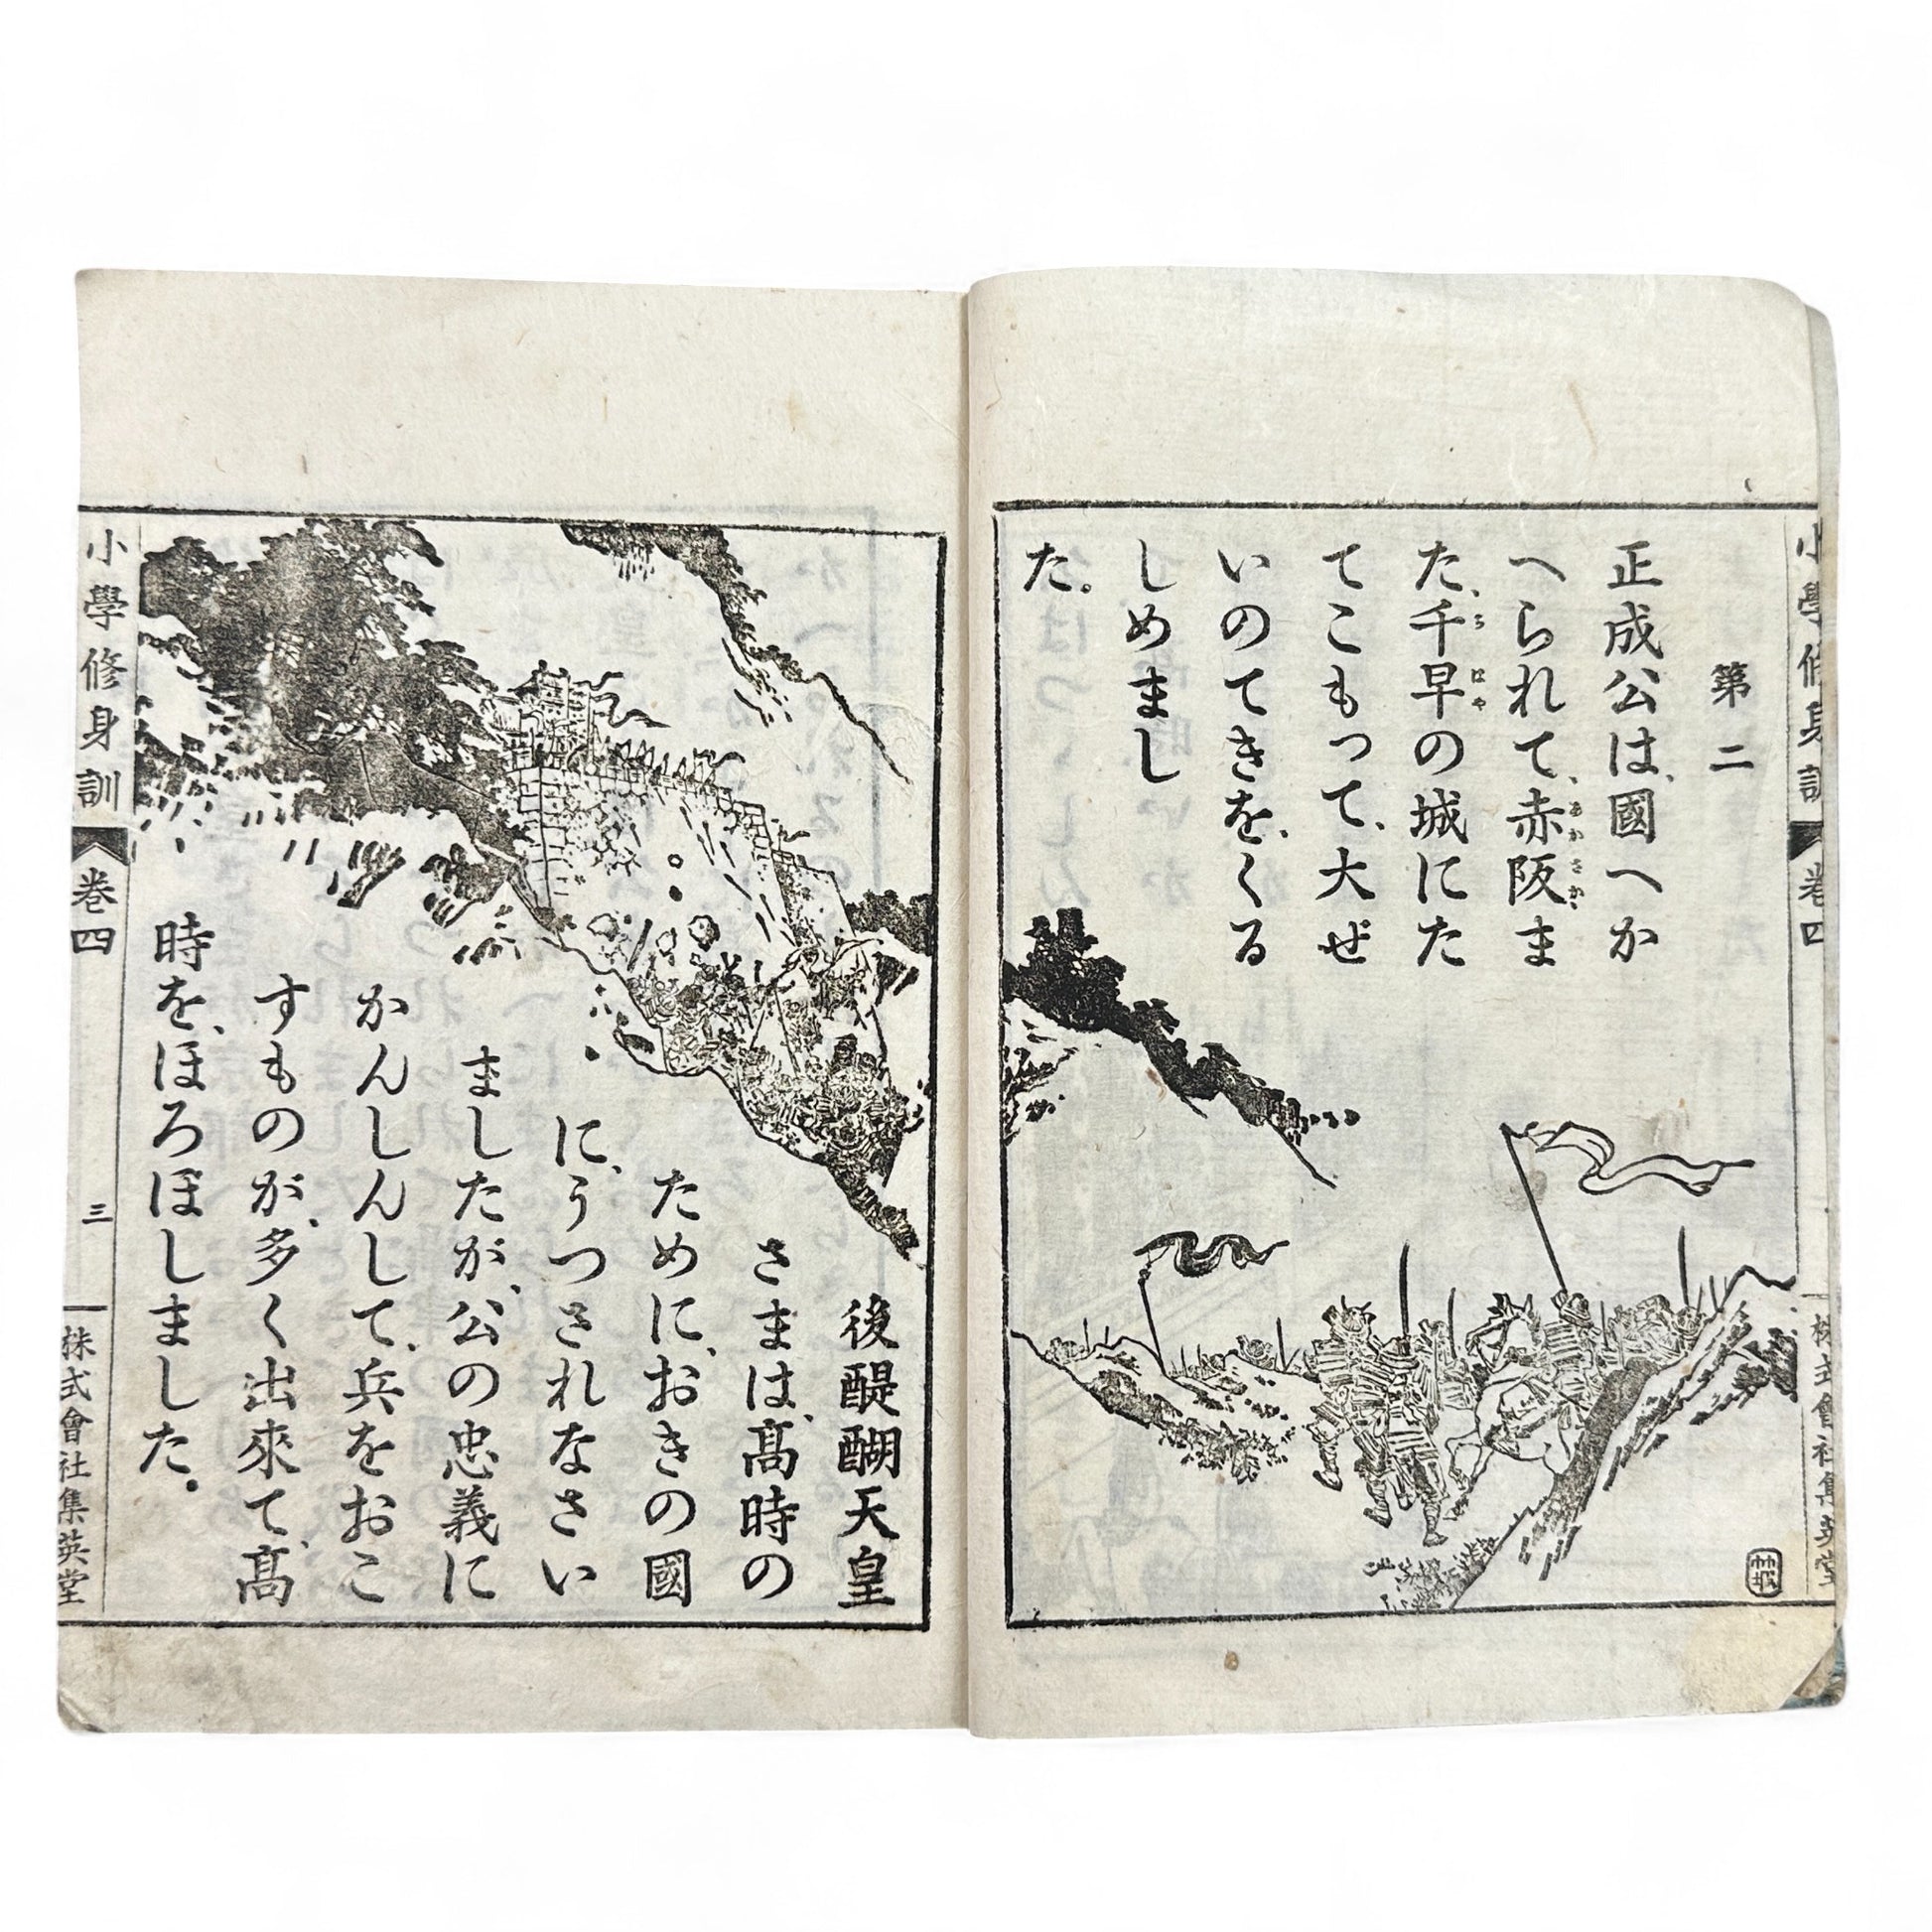 小學修身訓 卷四 株式會社集英堂
第二
正成公は、國へか
へられて、赤阪ま
あかさか
た、千早の城にた
ちはや
てこもって、大ぜ
いのてきを、くる
しめまし
た。
後醍醐天皇
さまは、高時の
ために、おきの國
に、うつされなさい
ましたが、公の忠義に
かんしんして、兵をおこ
すものが、多く出來て、高
時を、ほろぼしました。
小學修身訓 卷四 三 株式會社集英堂